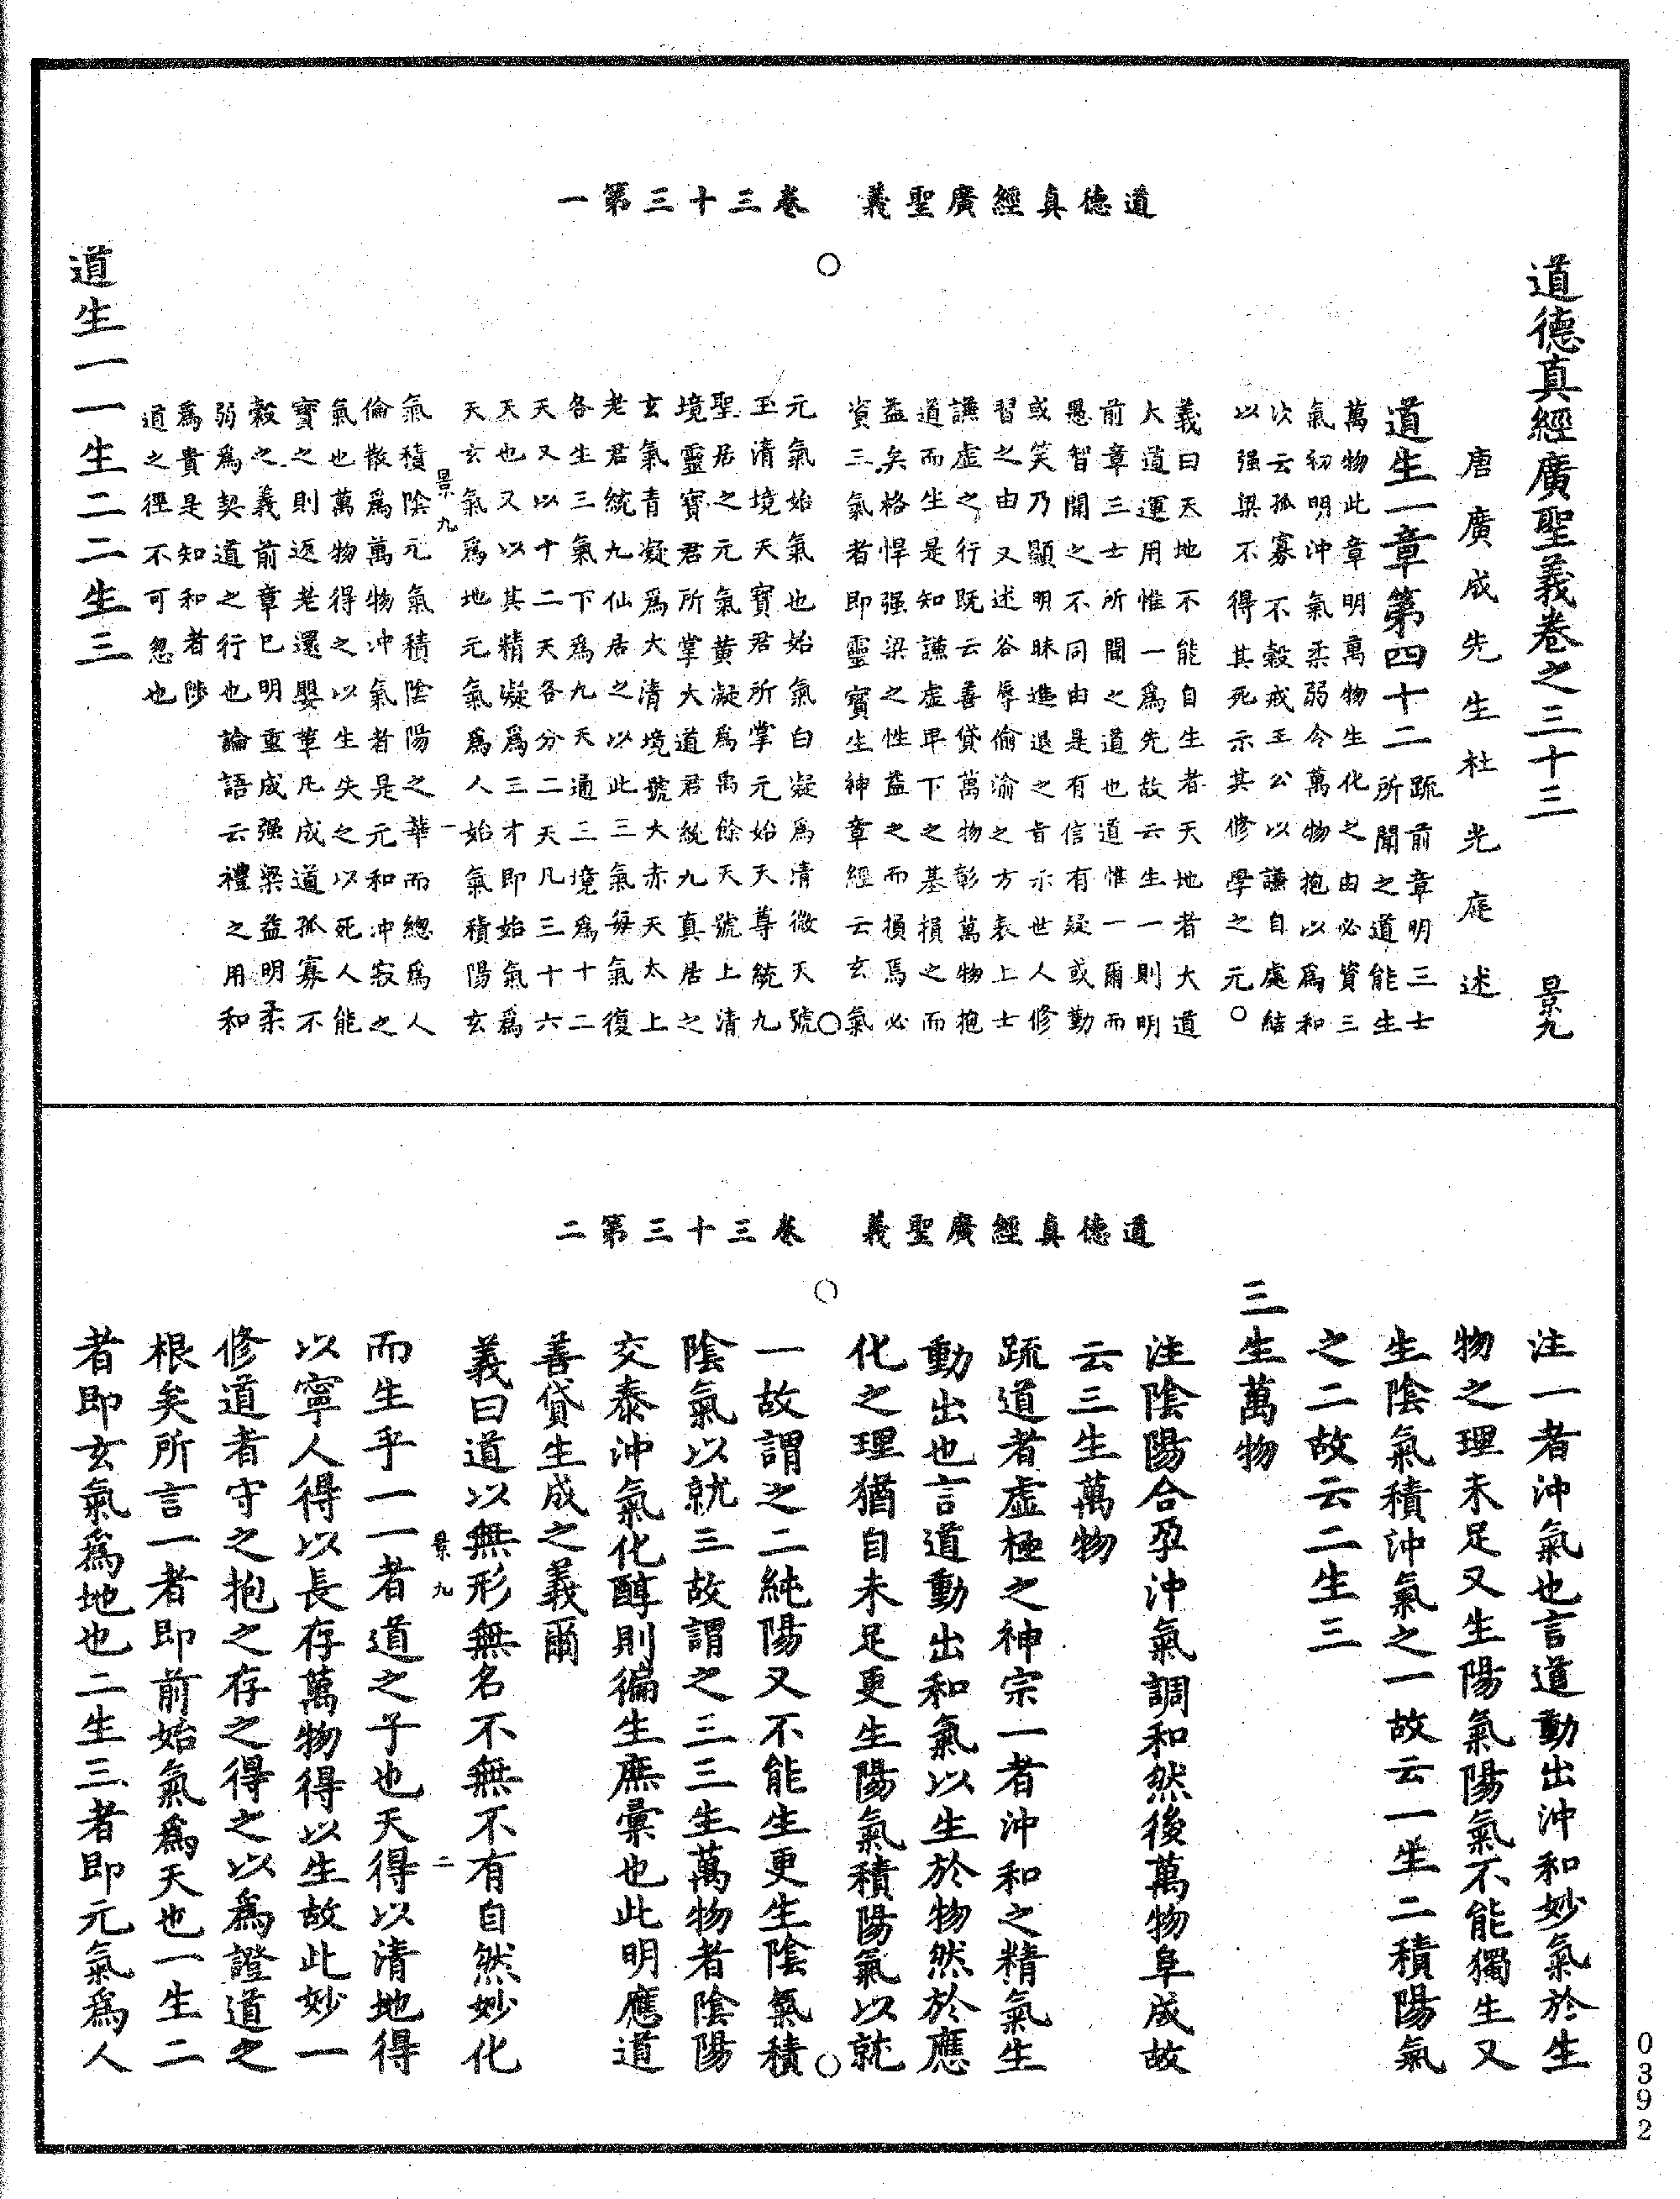 道德真經廣聖義 卷三十三第一
道德真經廣聖義卷之三十三 景九
唐廣成先生杜光庭述
道生一章第四十二
疏前章明三士
所聞之道能生
萬物此章明萬物生化之由必資三
氣初明沖氣柔弱令萬物抱以為和
次云孤寡不穀戒王公以謙自處結
以强梁不得其死示其修學之元
義曰天地不能自生者天地者大道
大道運用惟一為先故云生一則明
前章三士所聞之道也道惟一爾而
愚智聞之不同由是有信有疑或勤
或笑乃顯明昧進退之旨示世人修
習之由又述谷辱偷渝之方表上士
謙虛之行既云善貸萬物彰萬物抱
道而生是知謙虛卑下之基損之而
益矣格悍强梁之性益之而損焉必
資三氣者即靈寶生神章經云玄氣
元氣始氣也始氣白凝為清微天號
玉清境天寶君所掌元始天尊統九
聖居之元氣黃凝為禹餘天號上清
境靈寶君所掌大道君統九真居之
玄氣青凝為大清境號大赤天太上
老君統九仙居之以此三氣每氣復
各生三氣下為九天通三境為十二
天又以十二天各分二天凡三十六
天也又以其精凝為三才即始氣為
天玄氣為地元氣為人始氣積陽玄
景九 一
氣積陰元氣積陰陽之華而總為人
倫散為萬物沖氣者是元和沖寂之
氣也萬物得之以生失之以死人能
寶之則返老還嬰華凡成道孤寡不
穀之義前章已明重成强梁益明柔
弱為契道之行也論語云禮之用和
為貴是知和者陟
道之徑不可忽也
道生一一生二二生三
道德真經廣聖義 卷三十三第二
注一者沖氣也言道動出沖和妙氣於生
物之理未足又生陽氣陽氣不能獨生又
生陰氣積沖氣之一故云一生二積陽氣
之二故云二生三
三生萬物
注陰陽合孕沖氣調和然後萬物阜成故
云三生萬物
疏道者虛極之神宗一者沖和之精氣生
動出也言道動出和氣以生於物然於應
化之理猶自未足更生陽氣積陽氣以就
一故謂之二純陽又不能生更生陰氣積
陰氣以就三故謂之三三生萬物者陰陽
交泰沖氣化醇則徧生庶彙也此明應道
善貸生成之義爾
義曰道以無形無名不無不有自然妙化
景九 二
而生乎一一者道之子也天得以清地得
以寧人得以長存萬物得以生故此妙一
修道者守之抱之存之得之以為證道之
根矣所言一者即前始氣為天也一生二
者即玄氣為地也二生三者即元氣為人
0392